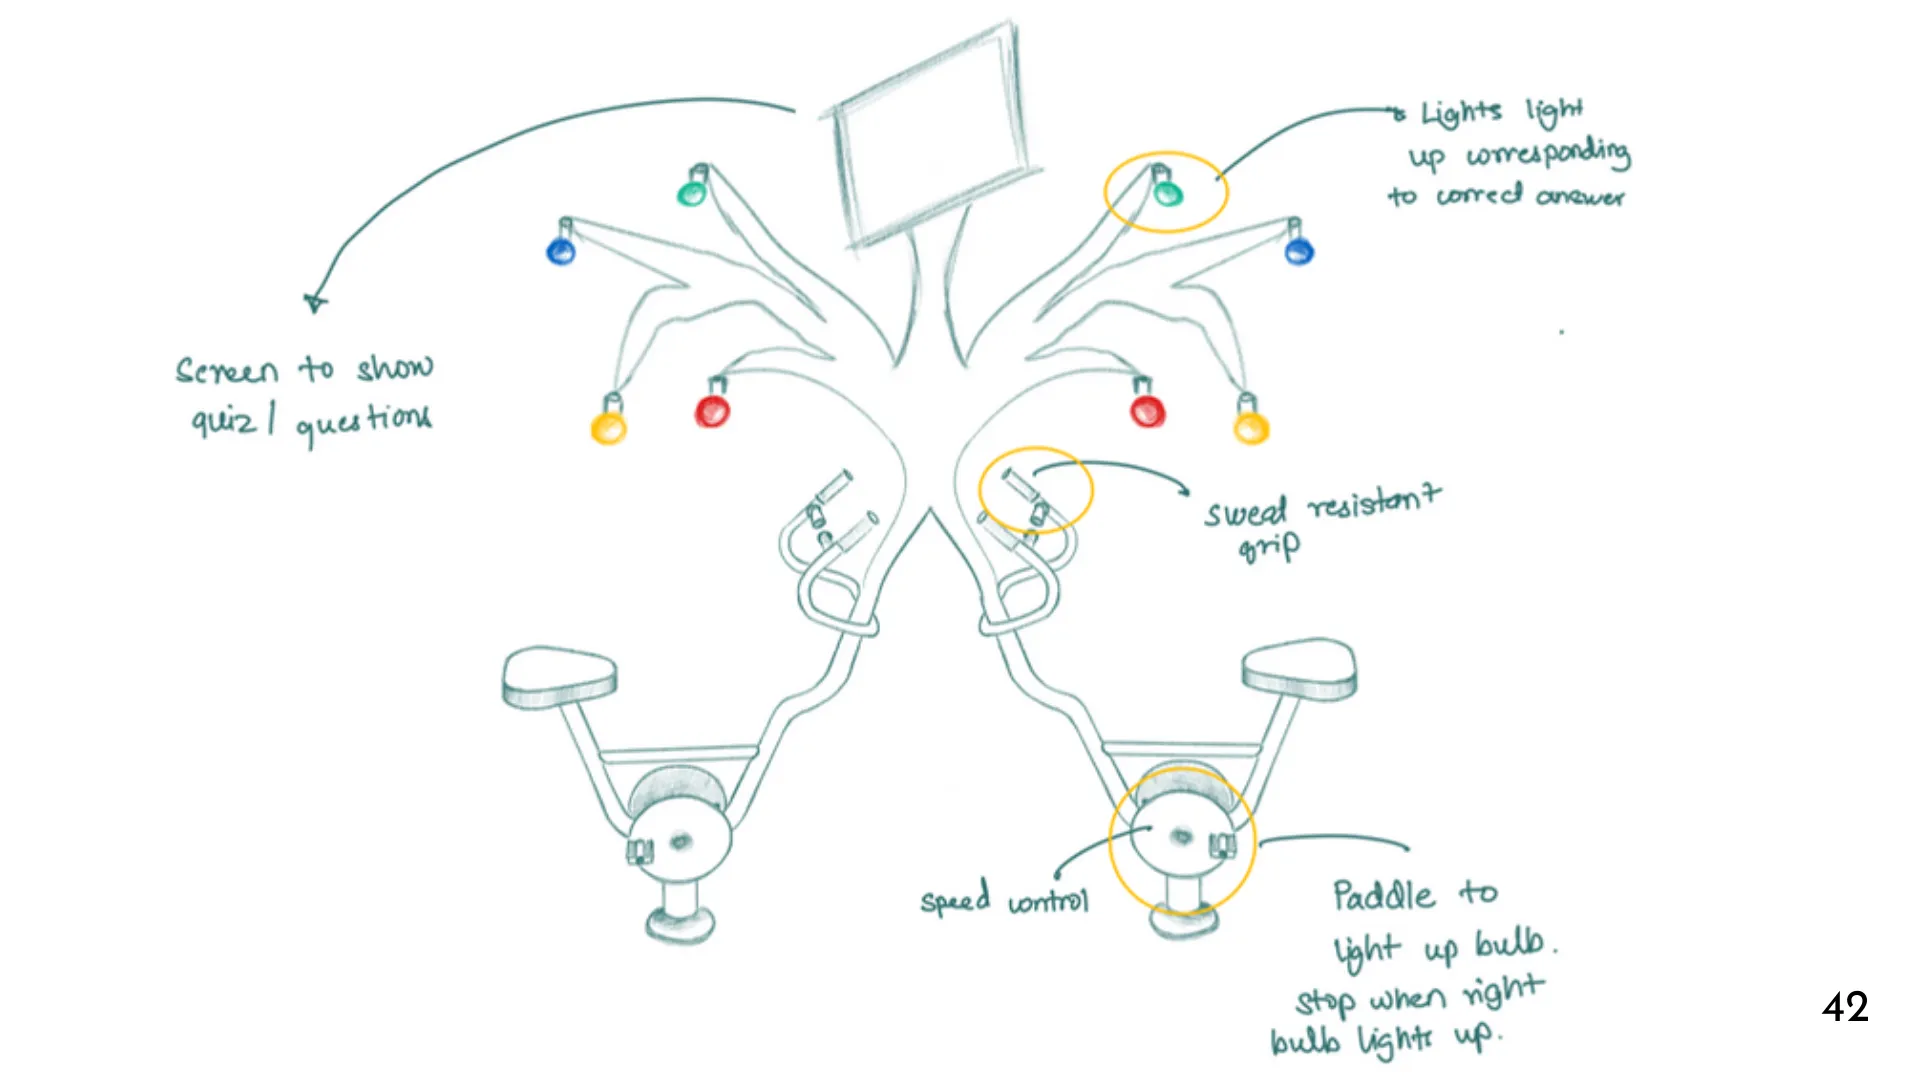 Lights light
up corresponding
to correct answer
Screen to show
quiz/ questions
sweat resistant
grip
speed control
Paddle to
light up bulb.
stop when right
bulb lights up.
42